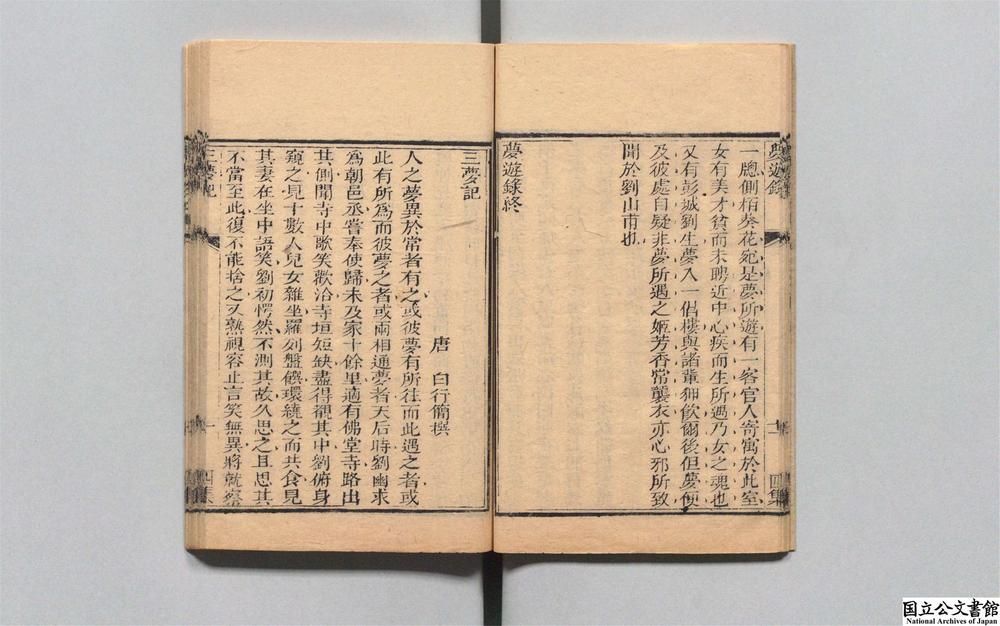 夢遊錄
一牎側栢葵花宛是夢所遊有一客官人寄寓於此室
女有美才貧而未聘近中心疾而生所遇乃女之魂也
又有彭城劉生夢入一倡樓與諸輩狎飲爾後但夢便
及彼處自疑非夢所遇之姬芳香常襲衣亦心邪所致
聞於劉山甫也
夢遊錄終
十一
四集
三夢記
唐 白行簡撰
人之夢異於常者有之或彼夢有所往而此遇之者或
此有所爲而彼夢之者或兩相通夢者天后時劉幽求
爲朝邑丞嘗奉使歸未及家十餘里適有佛堂寺路出
其側聞寺中歌笑歡洽寺垣短缺盡得覩其中劉俯身
窺之見十數人兒女雜坐羅列盤饌環繞之而共食見
其妻在坐中語笑劉初愕然不測其故久思之且思其
不當至此復不能捨之又熟視容止言笑無異將就察
三夢記
一
四集
国立公文書館
National Archives of Japan